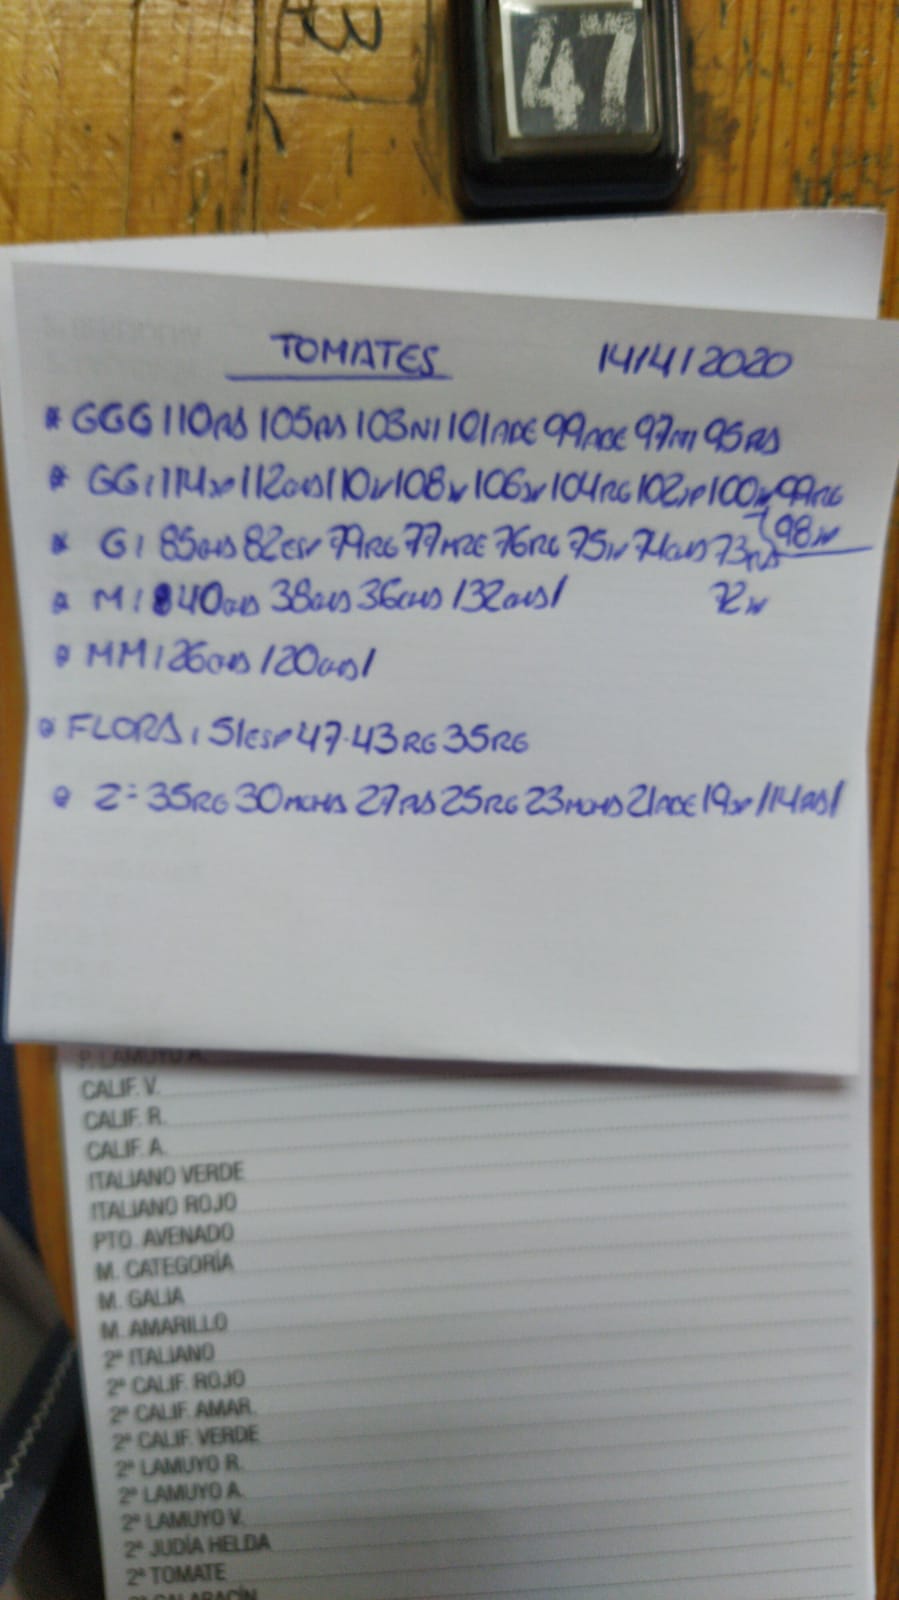 47
TOMATES 14/4/2020
* GGG 110RS 105RS 103NI 101ADE 99ADE 97NI 95RS
* GG: 114JP 112CHS 110 108 106 104RG 102JP 100 99RG
98
* G: 85CHS 82ESP 79RG 77MRE 76RG 75 74CHS 73RS
* M: 40CHS 38CHS 36CHS /32CHS/ 72
* MM: 26CHS /20CHS/
* FLORA: 51ESP 47-43RG 35RG
* 2ª 35RG 30MCHS 27RS 25RG 23MCHS 21ADE 19JP /14RS/
P. LAMUYO A.
CALIF. V.
CALIF. R.
CALIF. A.
ITALIANO VERDE
ITALIANO ROJO
PTO. AVENADO
M. CATEGORÍA
M. GALIA
M. AMARILLO
2ª ITALIANO
2ª CALIF. ROJO
2ª CALIF. AMAR.
2ª CALIF. VERDE
2ª LAMUYO R.
2ª LAMUYO A.
2ª LAMUYO V.
2ª JUDÍA HELDA
2ª TOMATE
2ª CALABACÍN